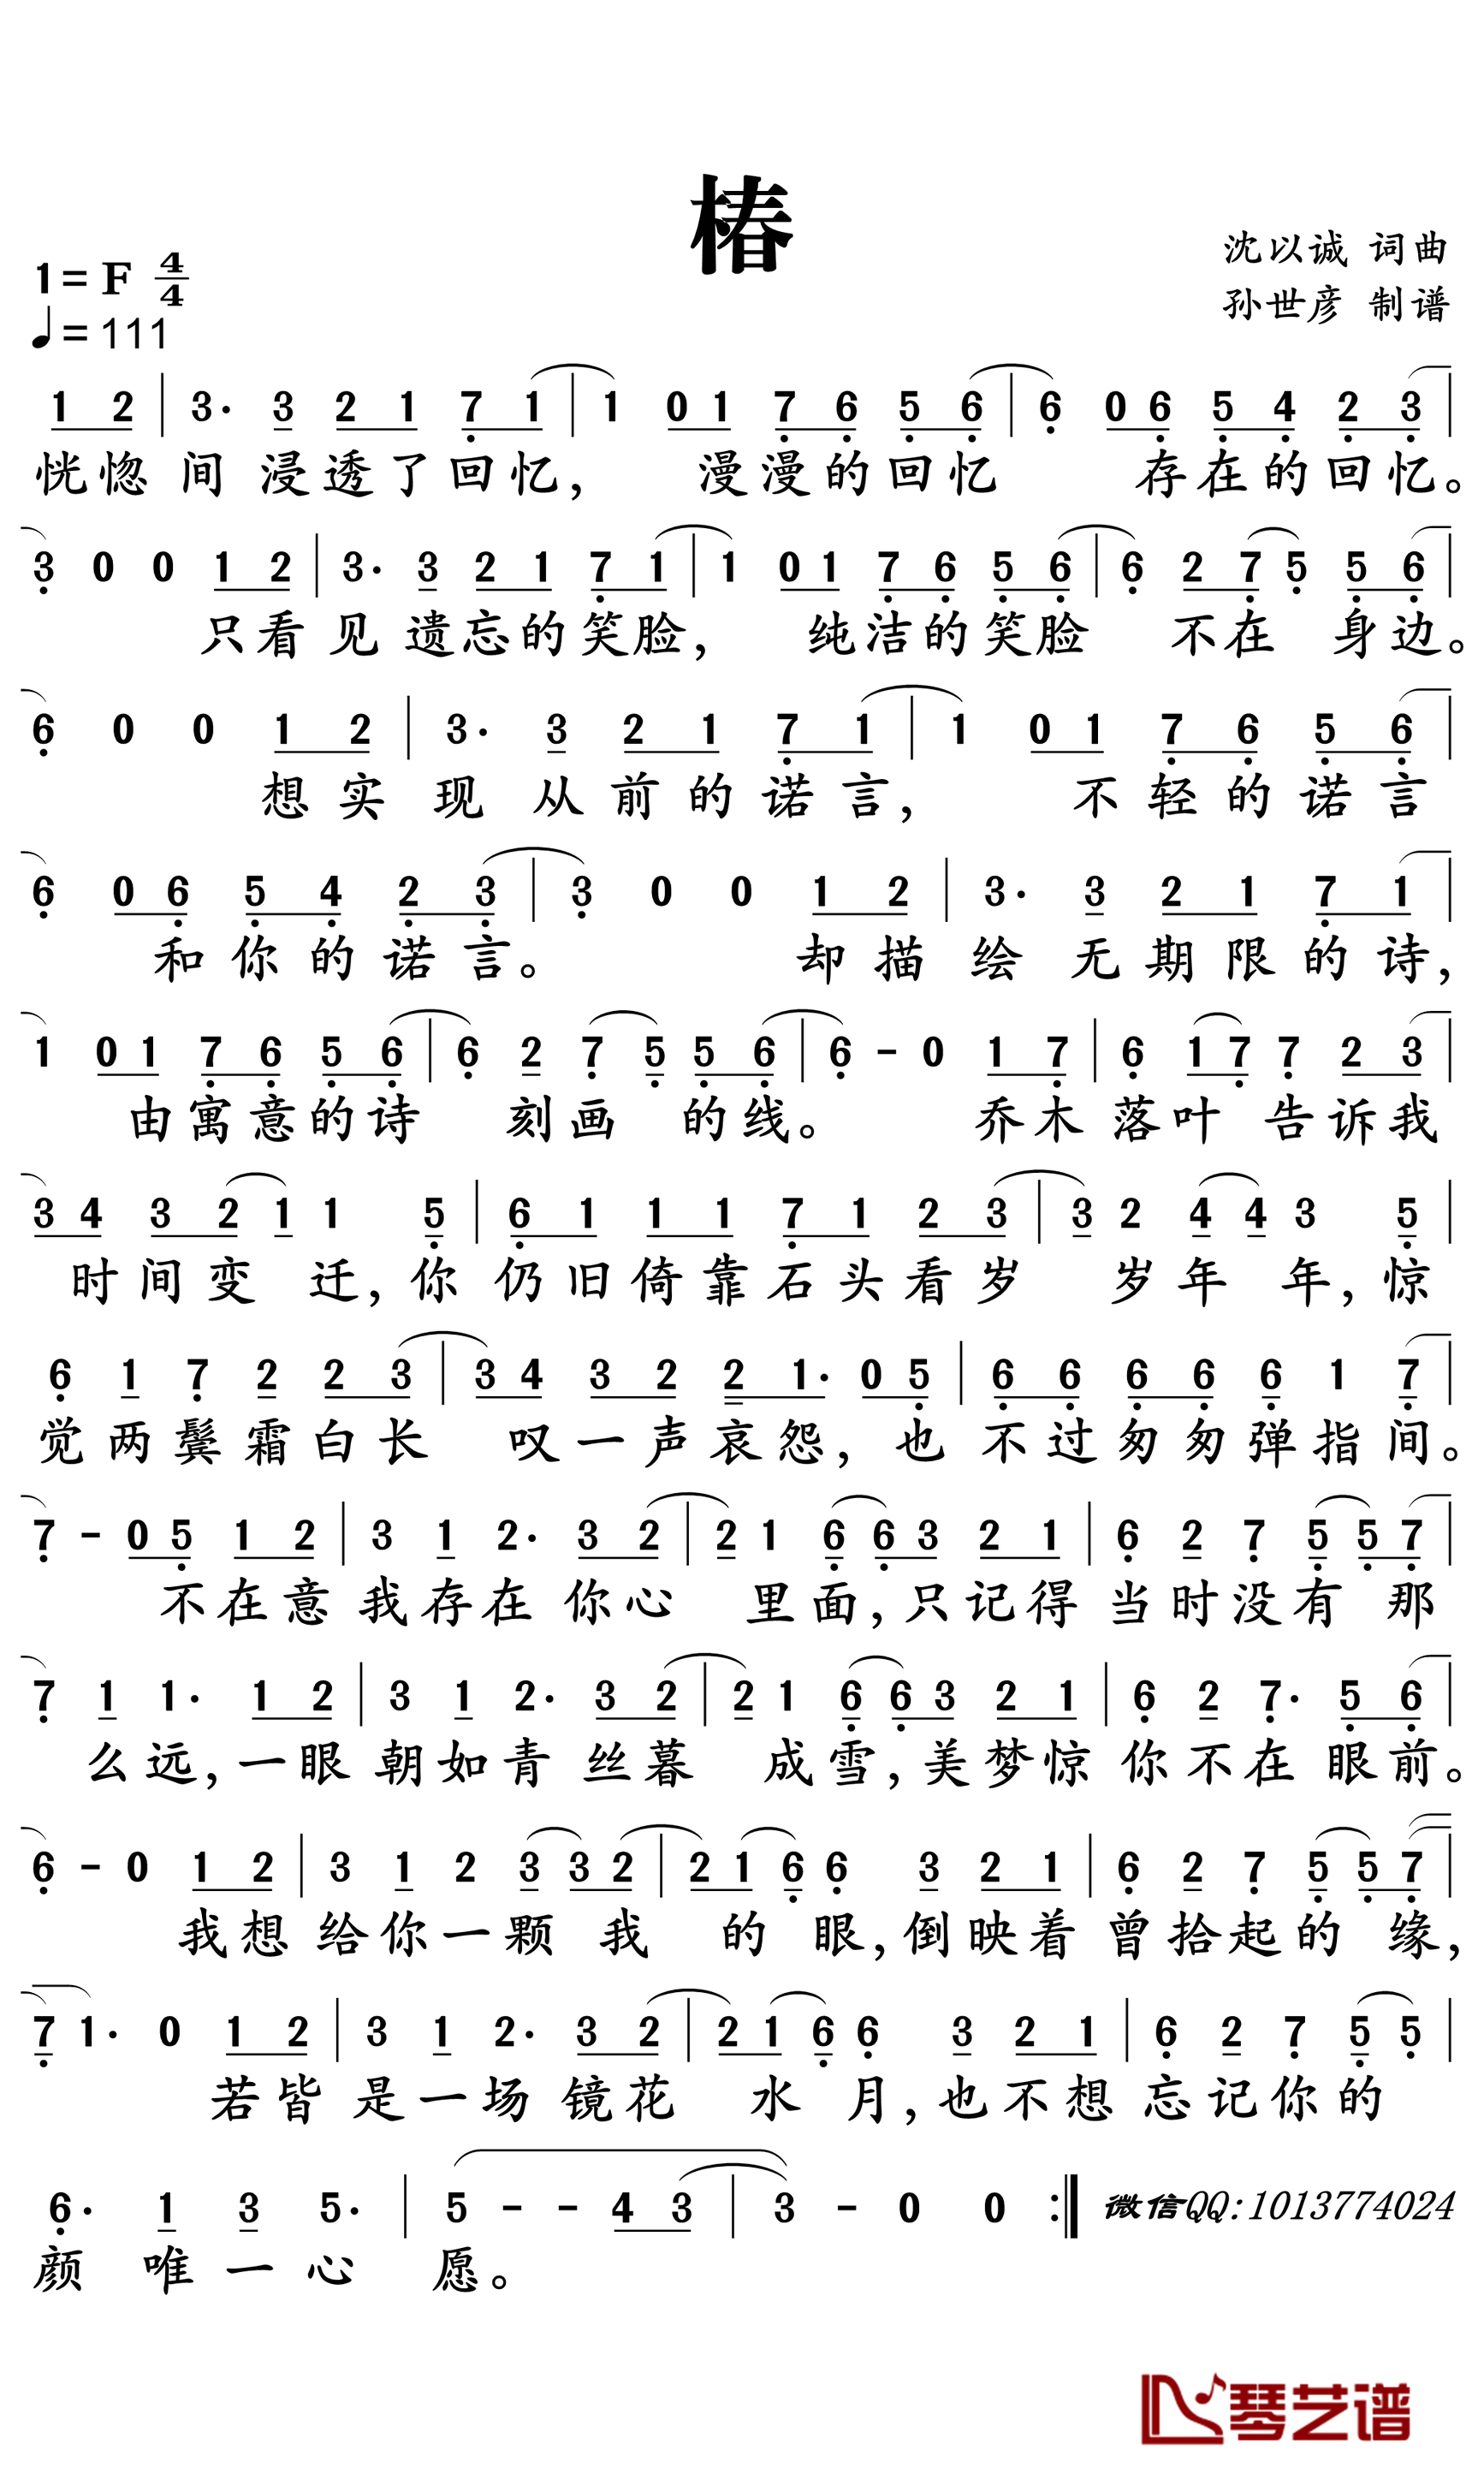 椿
沈以诚 词曲
孙世彦 制谱
1=F 4/4
♩=111
1 2 | 3· 3 2 1 7 1 | 1 0 1 7 6 5 6 | 6 0 6 5 4 2 3 |
恍惚间浸透了回忆, 漫漫的回忆 存在的回忆。
3 0 0 1 2 | 3· 3 2 1 7 1 | 1 0 1 7 6 5 6 | 6 2 7 5 5 6 |
只看见遗忘的笑脸, 纯洁的笑脸 不在 身边。
6 0 0 1 2 | 3· 3 2 1 7 1 | 1 0 1 7 6 5 6 |
想实现从前的诺言, 不轻的诺言
6 0 6 5 4 2 3 | 3 0 0 1 2 | 3· 3 2 1 7 1 |
和你的诺言。 却描绘无期限的诗,
1 0 1 7 6 5 6 | 6 2 7 5 5 6 | 6 - 0 1 7 | 6 1 7 7 2 3 |
由寓意的诗 刻画 的线。 乔木落叶 告诉我
3 4 3 2 1 1 5 | 6 1 1 1 7 1 2 3 | 3 2 4 4 3 5 |
时间变 迁,你仍旧倚靠石头看岁 岁年 年,惊
6 1 7 2 2 3 | 3 4 3 2 2 1· 0 5 | 6 6 6 6 6 1 7 |
觉两鬓霜白长 叹一声哀怨,也不过匆匆弹指间。
7 - 0 5 1 2 | 3 1 2· 3 2 | 2 1 6 6 3 2 1 | 6 2 7 5 5 7 |
不在意我存在你心 里面,只记得当时没有 那
7 1 1· 1 2 | 3 1 2· 3 2 | 2 1 6 6 3 2 1 | 6 2 7· 5 6 |
么远,一眼朝如青丝暮 成雪,美梦惊你不在眼前。
6 - 0 1 2 | 3 1 2 3 3 2 | 2 1 6 6 3 2 1 | 6 2 7 5 5 7 |
我想给你一颗 我 的 眼,倒映着曾拾起的 缘,
7 1· 0 1 2 | 3 1 2· 3 2 | 2 1 6 6 3 2 1 | 6 2 7 5 5 |
若皆是一场镜花 水 月,也不想忘记你的
6· 1 3 5· | 5 - - 4 3 | 3 - 0 0 :| 微信QQ:1013774024
颜唯一心 愿。
琴艺谱